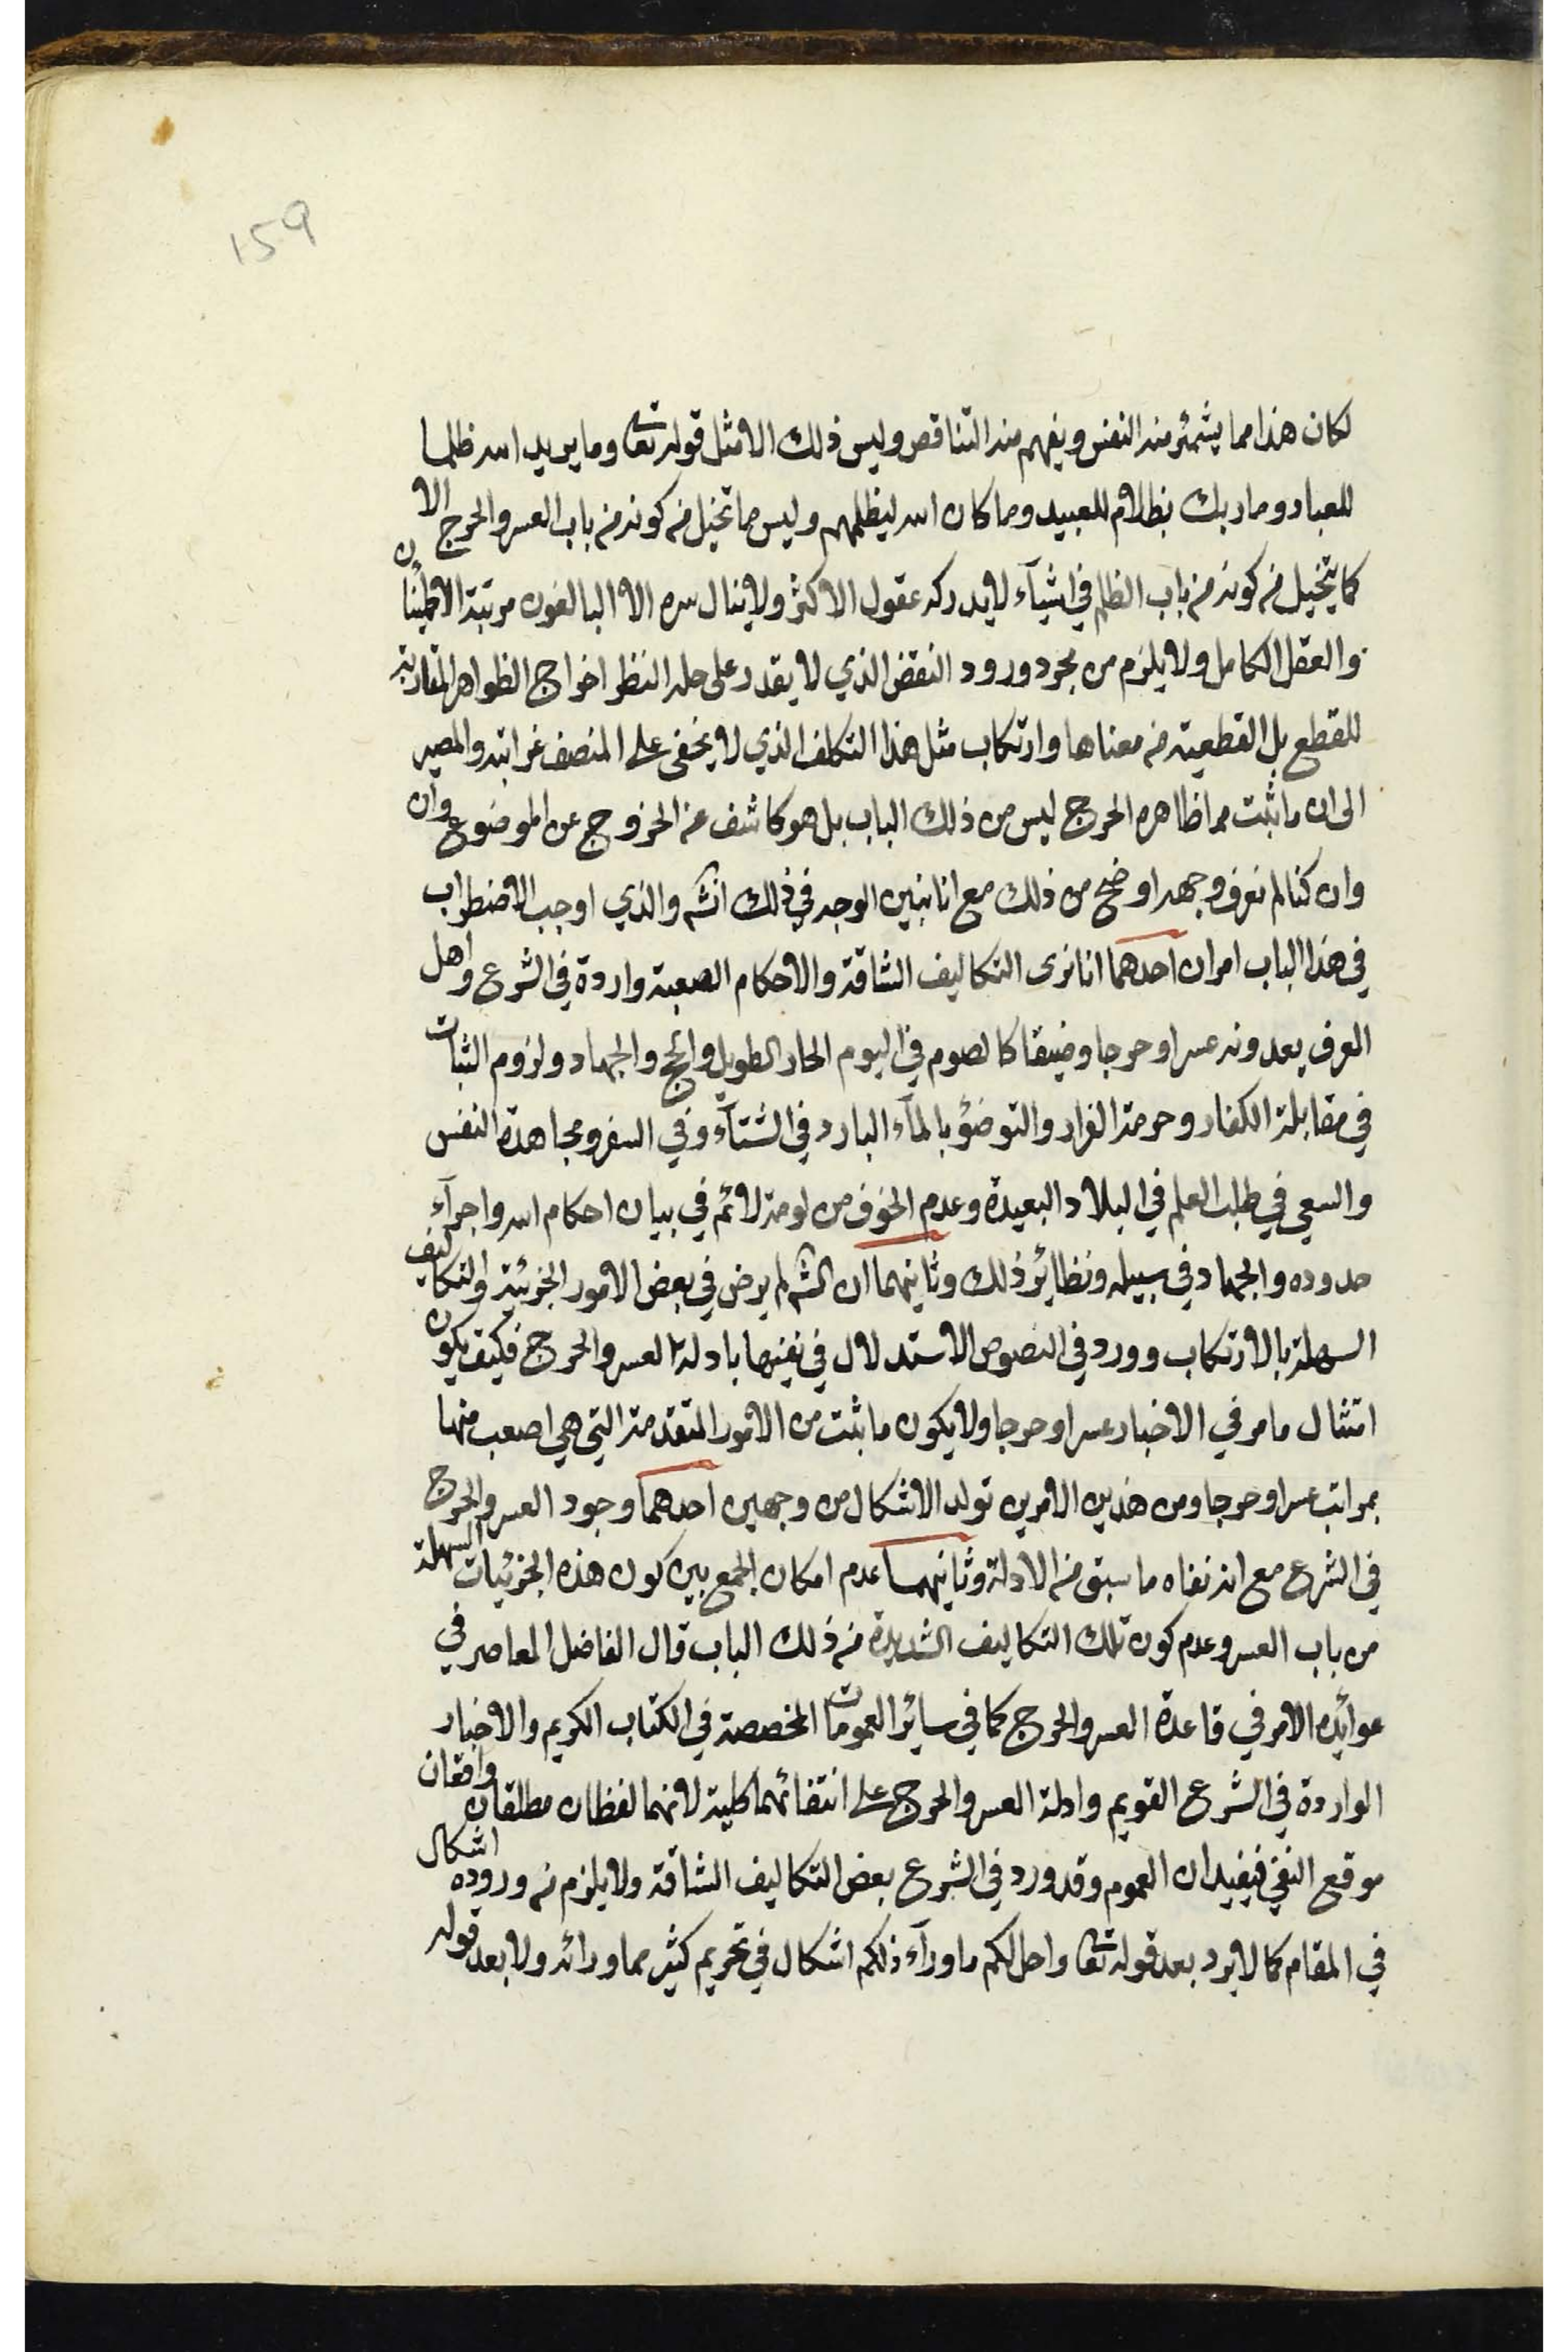 159
لكان هذا مما يشمئز منه النفس ويفهم منه التناقض وليس ذلك الا مثل قوله تعا وما يريد الله ظلما
للعباد وما ربك بظلام للعبيد وما كان الله ليظلمهم وليس ما تخيل من كونه من باب العسر والحرج الا
كما يتخيل من كونه من باب الظلم في اشيآء لا يدركه عقول الاكثر ولا ينال سره الا البالغون مرتبة الاطمينان
والعقل الكامل ولا يلزم من مجرد ورود النقض الذي لا يقدر على حله النظر اخراج الظواهر المقاربة
للقطع بل القطعية من معناها وارتكاب مثل هذا التكلف الذي لا يخفى على المنصف غرابته والمصير
الى ان ما ثبت مما ظاهره الحرج ليس من ذلك الباب بل هو كاشف عن الخروج عن الموضوع وان
وان كنا لم نعرف وجهه اوضح من ذلك مع انا نبين الوجه في ذلك انشه والذي اوجب الاضطراب
في هذا الباب امران احدهما انا نرى التكاليف الشاقة والاحكام الصعبة واردة في الشرع واهل
العرف يعدونه عسرا وحرجا وضيقا كالصوم في اليوم الحار الطويل والحج والجهاد ولزوم الثبات
في مقابلة الكفار وحرمة الفرار والتوضؤ بالمآء البارد في الشتآء وفي السفر ومجاهدة النفس
والسعي في طلب العلم في البلاد البعيدة وعدم الخوف من لومة لائم في بيان احكام الله واجرآء
حدوده والجهاد في سبيله ونظائر ذلك وثانيهما ان الشه لم يرض في بعض الامور الجزئية والتكاليف
السهلة بالارتكاب وورد في النصوص الاستدلال في نفيها بادلة العسر والحرج فكيف يكون
امتثال ما مر في الاخبار عسرا وحرجا ولا يكون ما ثبت من الامور المتقدمة التي هي اصعب منها
بمراتب عسرا وحرجا ومن هذين الامرين تولد الاشكال من وجهين احدهما وجود العسر والحرج
في الشرع مع انه نفاه ما سبق من الادلة وثانيهما عدم امكان الجمع بين كون هذه الجزئيات السهلة
من باب العسر وعدم كون تلك التكاليف الشديدة من ذلك الباب قال الفاضل المعاصر في
عوائده الامر في قاعدة العسر والحرج كما في سائر العمومات المخصصة في الكتاب الكريم والاخبار
الواردة في الشرع القويم وادلة العسر والحرج على انتفائهما كلية لانهما لفظان مطلقان واقعان
موقع النفي فيفيدان العموم وقد ورد في الشرع بعض التكاليف الشاقة ولا يلزم من وروده اشكال
في المقام كما لا يرد بعد قوله تعا واحل لكم ما ورآء ذلكم اشكال في تحريم كثير مما ورائه ولا بعد قوله